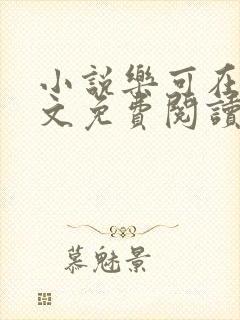 小說樂可在
文免費閱讀
慕魅景